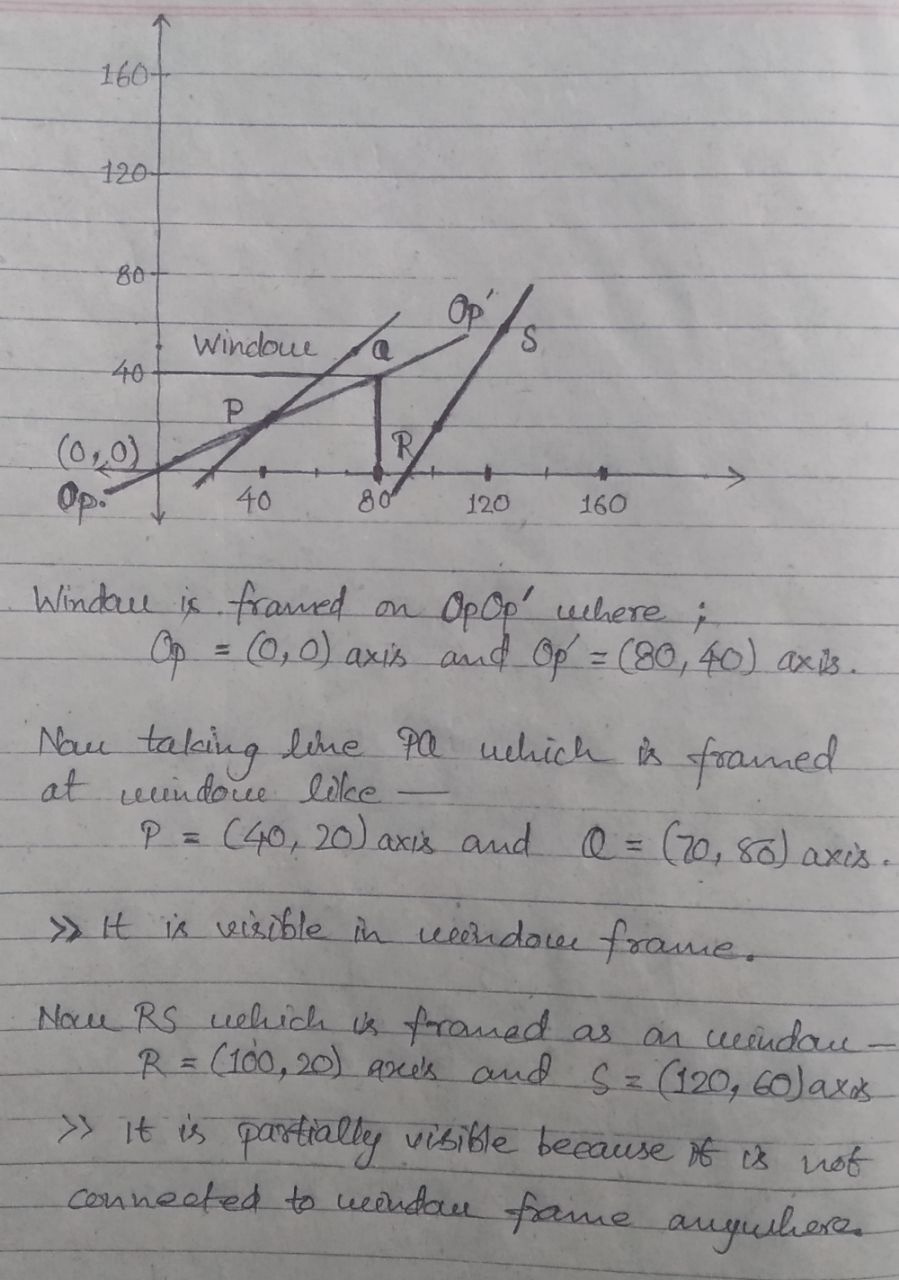 160
120
80
Op'
S
Windowe Q
40
P
(0,0) R
Op.
40 80 120 160
Window is framed on OpOp' where ;
Op = (0,0) axis and Op' = (80,40) axis.
Now taking line PQ which is framed
at window like —
P = (40, 20) axis and Q = (70, 80) axis.
>> It is visible in window frame.
Now RS which is framed as on window —
R = (100, 20) axis and S = (120, 60) axis
>> It is partially visible because it is not
connected to window frame anywhere.